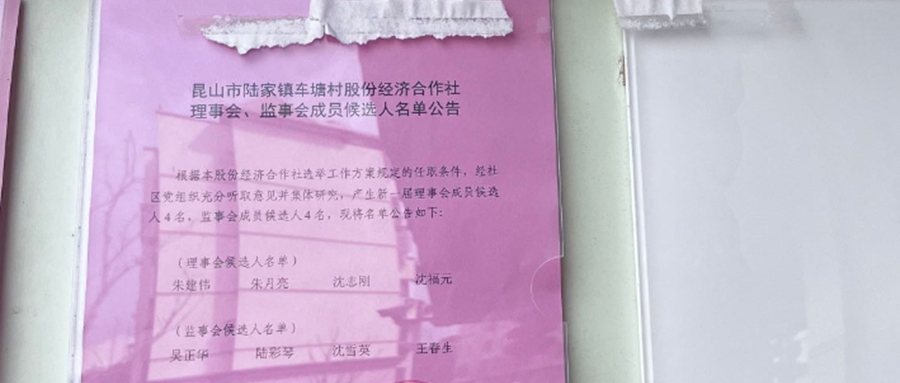 昆山市陆家镇车塘村股份经济合作社
理事会、监事会成员候选人名单公告
根据本股份经济合作社选举工作方案规定的任职条件，经社
区党组织充分听取意见并集体研究，产生新一届理事会成员候选
人4名，监事会成员候选人4名，现将名单公告如下：
（理事会候选人名单）
朱建伟 朱月亮 沈志刚 沈福元
（监事会候选人名单）
吴正华 陆彩琴 沈雪英 王春生